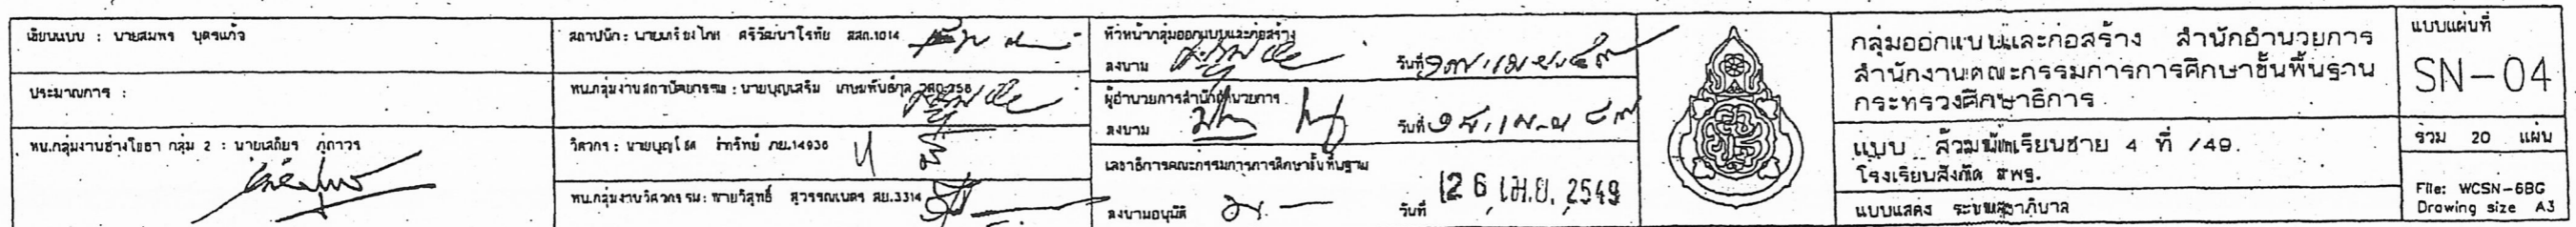 เขียนแบบ : นายสมพร บุตรแก้ว
ประมาณการ :
หน.กลุ่มงานช่างโยธา กลุ่ม 2 : นายเสถียร ภู่ถาวร
สถาปนิก : นายเกรียงไกร ศรีวัฒนาโรทัย สสถ.1014
หน.กลุ่มงานสถาปัตยกรรม : นายบุญเสริม เกษมพันธ์กุล
วิศวกร : นายบุญโชค ภย.14936
หน.กลุ่มงานวิศวกรรม : นายวิสุทธิ์ สุวรรณเนตร สย.3314
หัวหน้ากลุ่มออกแบบและก่อสร้าง
ลงนาม วันที่
ผู้อำนวยการสำนักอำนวยการ
ลงนาม วันที่
เลขาธิการคณะกรรมการการศึกษาขั้นพื้นฐาน
ลงนามอนุมัติ วันที่ 26 เม.ย. 2549
กลุ่มออกแบบและก่อสร้าง สำนักอำนวยการ
สำนักงานคณะกรรมการการศึกษาขั้นพื้นฐาน
กระทรวงศึกษาธิการ
แบบ ส้วมนักเรียนชาย 4 ที่ /49.
โรงเรียนสังกัด สพฐ.
แบบแสดง ระบบสุขาภิบาล
แบบแผ่นที่
SN-04
รวม 20 แผ่น
File: WCSN-6BG
Drawing size A3